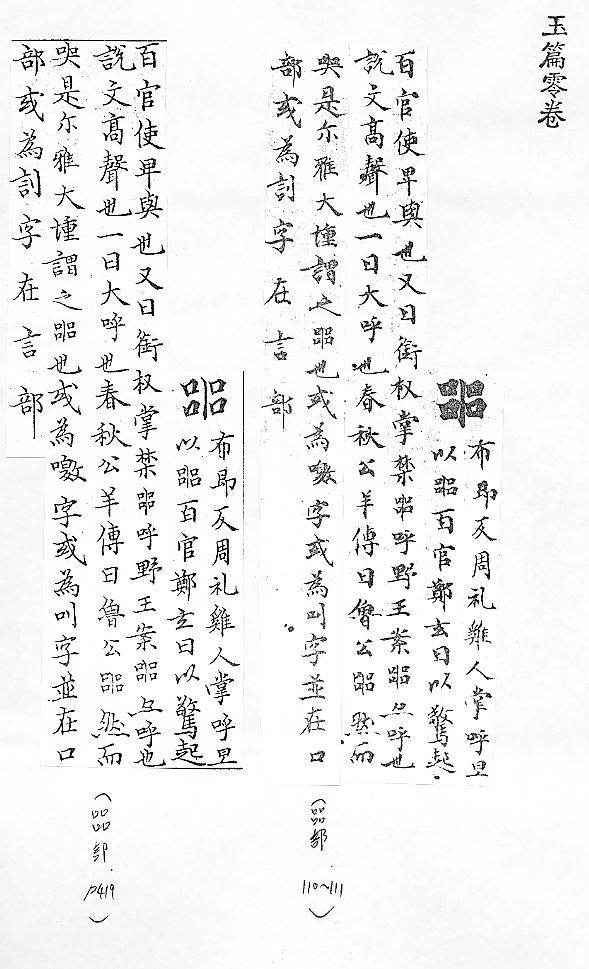 玉篇零卷
嘂
布即反周礼雞人掌呼旦
以嘂百官鄭玄曰以驚起
百官使早與也又曰銜枚掌禁嘂呼野王案嘂呼也
說文高聲也一曰大呼也春秋公羊傳曰魯公嘂然而
哭是尔雅大壎謂之嘂也或為噭字或為叫字並在口
部或為訆字在言部
(㗊部 110~111)
嘂
布即反周礼雞人掌呼旦
以嘂百官鄭玄曰以驚起
百官使早與也又曰銜枚掌禁嘂呼野王案嘂呼也
說文高聲也一曰大呼也春秋公羊傳曰魯公嘂然而
哭是尔雅大壎謂之嘂也或為噭字或為叫字並在口
部或為訆字在言部
(㗊部 P419)